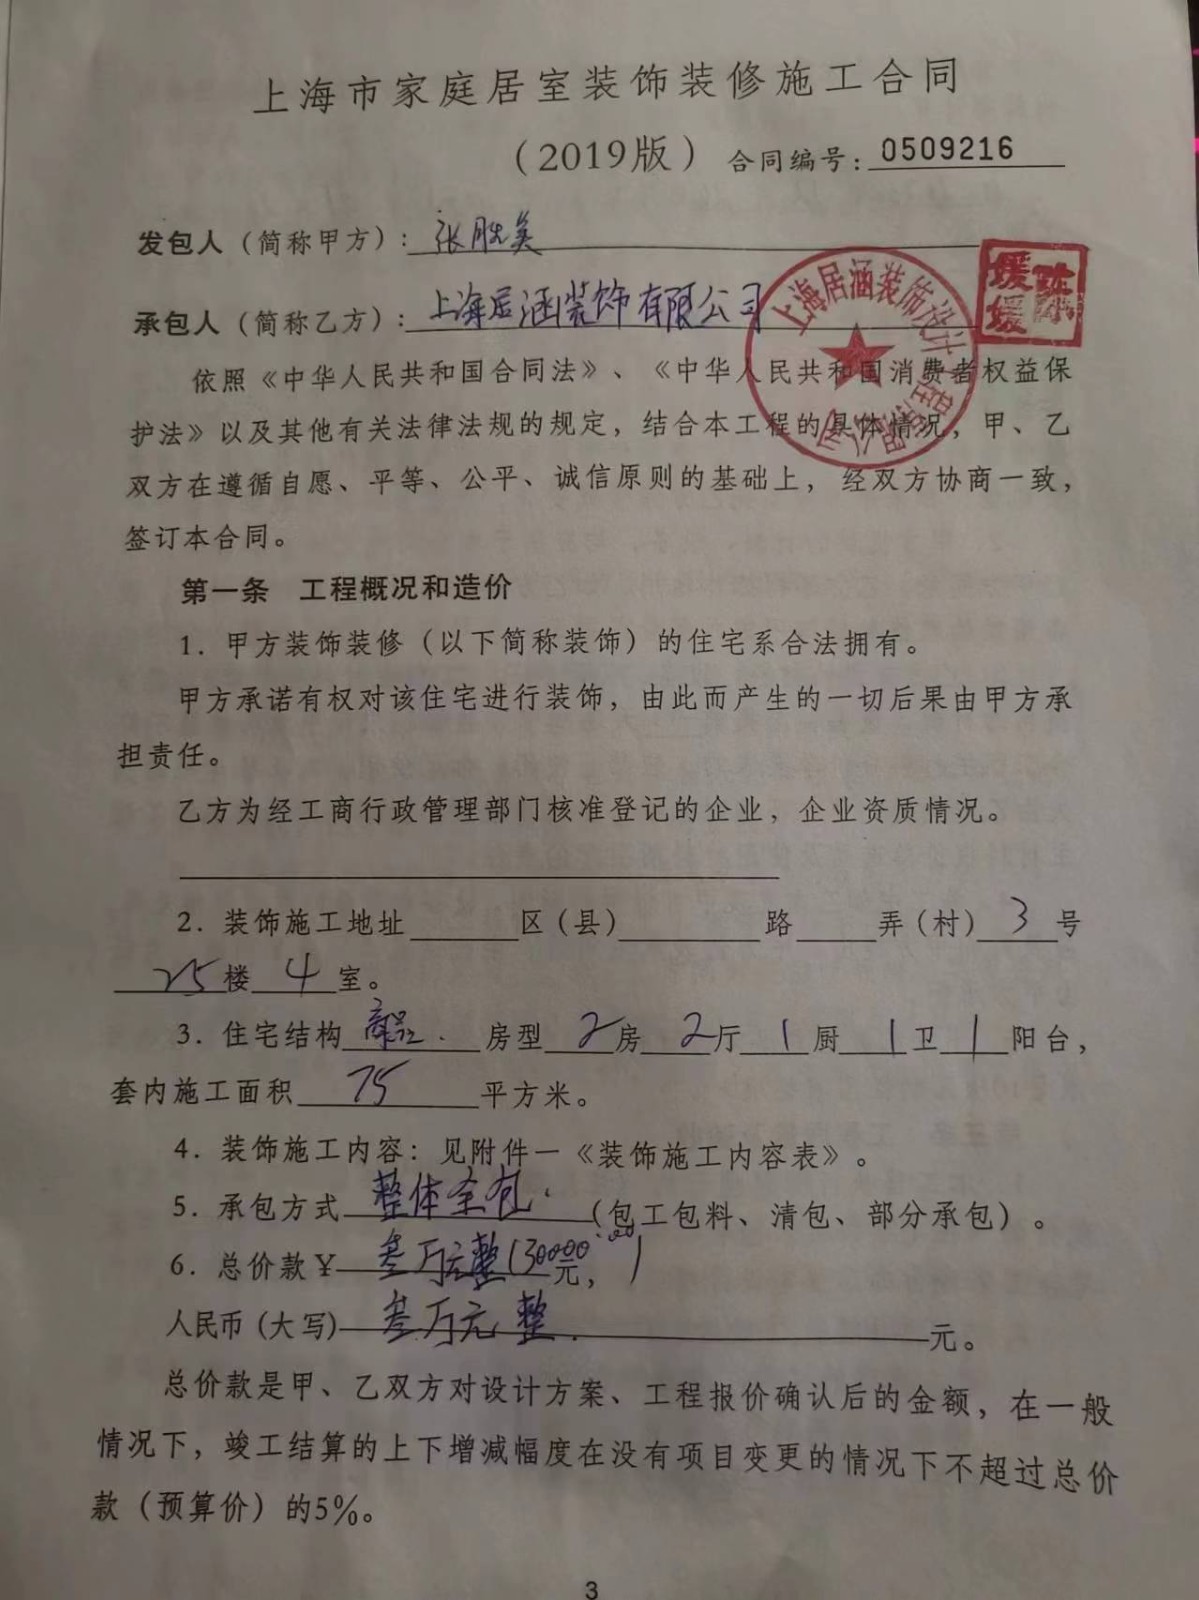 上海市家庭居室装饰装修施工合同
（2019版） 合同编号：0509216
发包人（简称甲方）：张胜美
承包人（简称乙方）：上海居涵装饰有限公司
上海居涵装饰设计
媛媛陈
依照《中华人民共和国合同法》、《中华人民共和国消费者权益保
护法》以及其他有关法律法规的规定，结合本工程的具体情况，甲、乙
双方在遵循自愿、平等、公平、诚信原则的基础上，经双方协商一致，
签订本合同。
第一条 工程概况和造价
1．甲方装饰装修（以下简称装饰）的住宅系合法拥有。
甲方承诺有权对该住宅进行装饰，由此而产生的一切后果由甲方承
担责任。
乙方为经工商行政管理部门核准登记的企业，企业资质情况。
2．装饰施工地址 区（县） 路 弄（村）3号
25楼4室。
3．住宅结构商品．房型2房2厅1厨1卫1阳台，
套内施工面积75平方米。
4．装饰施工内容：见附件一《装饰施工内容表》。
5．承包方式整体全包．（包工包料、清包、部分承包）。
6．总价款￥叁万元整（30000.00）元，
人民币（大写）叁万元整．元。
总价款是甲、乙双方对设计方案、工程报价确认后的金额，在一般
情况下，竣工结算的上下增减幅度在没有项目变更的情况下不超过总价
款（预算价）的5%。
3